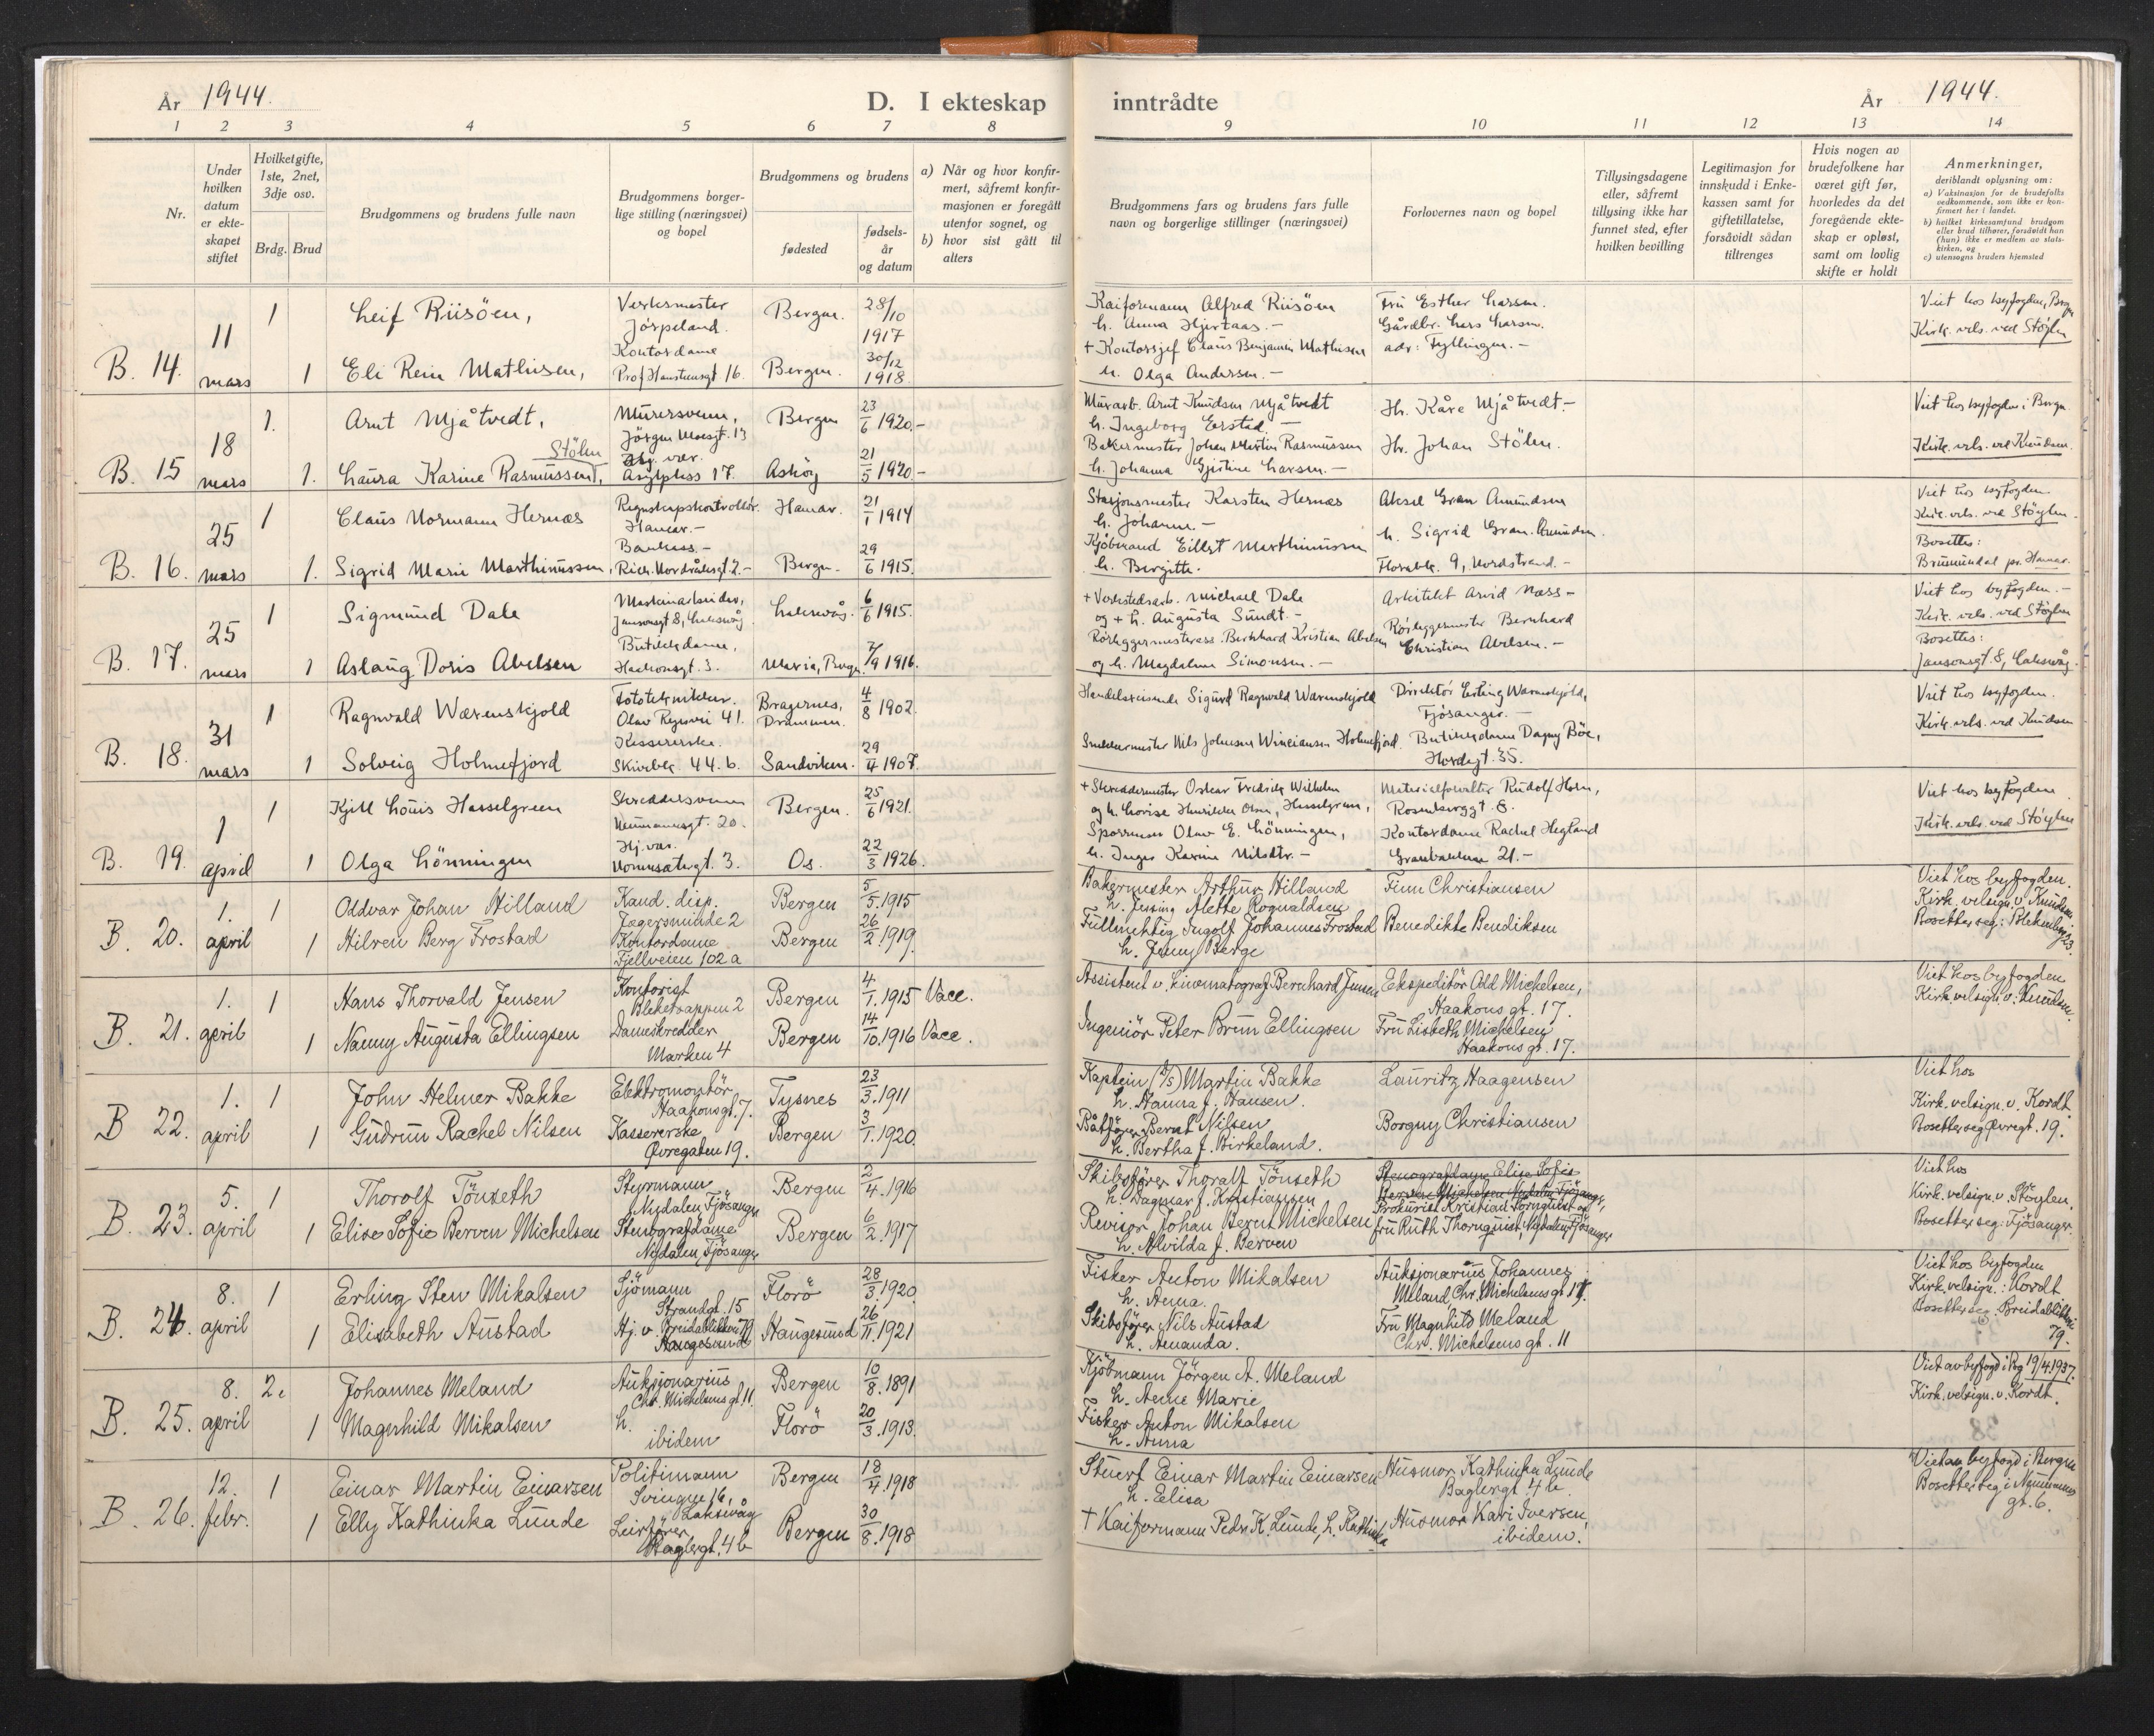 År 1944.
D. I ekteskap inntrådte
År 1944.
1 2 3 4 5 6 7 8 9 10 11 12 13 14
Nr.
Under hvilken datum er ekte- skapet stiftet
Hvilket gifte, 1ste, 2net, 3dje osv.
Brdg. Brud
Brudgommens og brudens fulle navn
Brudgommens borger- lige stilling (næringsvei) og bopel
Brudgommens og brudens
fødested
fødsels- år og datum
a) Når og hvor konfir- mert, såfremt konfir- masjonen er foregått utenfor sognet, og
b) hvor sist gått til alters
Brudgommens fars og brudens fars fulle navn og borgerlige stillinger (næringsvei)
Forlovernes navn og bopel
Tillysingsdagene eller, såfremt tillysing ikke har funnet sted, efter hvilken bevilling
Legitimasjon for innskudd i Enke- kassen samt for giftetillatelse, forsåvidt sådan tiltrenges
Hvis nogen av brudefolkene har været gift før, hvorledes da det foregående ekte- skap er opløst, samt om lovlig skifte er holdt
Anmerkninger, deriblandt oplysning om:
a) Vaksinasjon for de brudefolks vedkommende, som ikke er kon- firmert her i landet.
b) hvilket kirkesamfund brudgom eller brud tilhører, forsåvidt han (hun) ikke er medlem av stats- kirken, og
c) utensogns bruders hjemsted
B. 14. 11 mars 1 Leif Riisöen, Verksmester Jörpeland. Bergen. 28/10 1917
1 Eli Rein Mathisen, Kontordame Prof Hansteensgt 16. Bergen. 30/12 1918.
Kaiformann Alfred Riisöen
h. Anna Hjertaas. -
+ Kontorsjef Claus Benjamin Mathisen
h. Olga Andersen. -
Fru Esther Larsen.
Gårdbr. Lars Larsen.
adr: Fyllingen. -
Viet hos byfogden, Berg
Kirk. vels. ved Stöylen
B. 15 18 mars 1. Arnt Mjåtvedt, Murersvenn, Jörgen Moesgt. 13 Bergen 23/6 1920.-
1. Laura Karine Rasmussen, Stölen Asylplass 17. Asköy 21/5 1920-
Murarb. Arnt Knudsen Mjåtvedt
h. Ingeborg Erstad. -
Bakermester Johan Martin Rasmussen
h. Johanna Gjertine Larsen. -
Hr. Kåre Mjåtvedt.-
Hr. Johan Stölen.
Viet hos byfogden i Bergn.
Kirk. vels. ved Knudsen.
B. 16. 25 mars 1 Claus Normann Hernæs Regnskapskontrollör. Hamar.- Hamar. 21/1 1914
1. Sigrid Marie Marthinussen, Bankass.- Rich. Nordråksgt 2.- Bergn. 29/6 1915.
Stasjonsmester Karsten Hernæs
h. Johanne. -
Kjöbmand Eillert Marthinussen
h. Bergitte.
Aksel Gran Amundsen
h. Sigrid Gran. Amundsen.
9, Nordstrand. -
Viet hos byfogden
Kirk. vels. ved Stöylen.
Bosettes:
Brumunddal pr. Hamar.
B. 17. 25 mars 1 Sigmund Dale Maskinarbeider, Jansonsgt 8, Laksevåg Laksevåg. 6/6 1915.
1 Aslaug Doris Abelsen Butikkdame, Haakonsgt. 3. Maria, Bergn. 7/9 1916.
+ Verkstedsarb. Michael Dale
og + h. Augusta Sundt. -
Rörleggermesterass. Bernhard Kristian Abelsen
og h. Magdalene Simonsen. -
Arkitekt Arvid Næss -
Rörleggermester Bernhard
Christian Abelsen. -
Viet hos byfogden. -
Kirk. vels. ved Stöylen
Bosettes:
Jansonsgt. 8, Laksevåg.
B. 18. 31 mars 1 Ragnvald Wærenskjold Fototekniker. Olav Ryesvei 41. Bragernes, Drammen. 4/8 1902.
1 Solveig Holmefjord Kassererske. Skivebk. 44. b. Sandviken. 29/4 1907.
Handelsreisende Sigurd Ragnvald Wærenskjold
Snekkermester Nils Johnsen Holmefjord.
Direktör Erling Wærenskjold,
Fjösanger. -
Butikkdame Dagny Böe,
Hordagt. 35.
Viet hos byfogden.
Kirk. vels. ved Knudsen
B. 19. 1 april 1 Kjell Louis Hasselgreen Skreddersvenn Neumannsgt. 20. Bergen. 25/6 1921.
1 Olga Lönningen Hj.vær. 3. Os. 22/3 1926.
+ Skreddermester Oskar Fredrik Wilhelm
og h. Lovise Henrikke Olsn, Hasselgreen,
Sporemann Olav E. Lönningen,
h. Inger Karine Nilsdtr. -
Materialforvalter Rudolf Horn,
Rosenberggt. 8.
Kontordame Rachel Hegland
21. -
Viet hos byfogden
Kirk. vels. ved Stöylen
B. 20. 1. april 1 Oddvar Johan Hilland Kand. disp. Jægersminde 2 Bergen 5/5.1915
1 Hilren Berg Frostad Kontordame Fjellveien 102a Bergen 26/2.1919.
Bakermester Arthur Hilland
h. Jensine Alette Rognaldsen
Fullmektig Ingolf Johannes Frostad
h. Jenny Berge
Finn Christiansen
Benedikte Bendiksen
Viet hos byfogden.
Kirk. velsign. v. Knudsen.
Bosetter seg: Blekenbg. 23.
B. 21. 1. april 1 Hans Thorvald Jensen Kontorist Bleketrappen 2 Bergen 4/1.1915 Vacc.
1 Nanny Augusta Ellingsen Dameskredder Marken 4 Bergen 14/10.1916 Vacc.
Assistent v. kinematograf Bernhard Jensen
Ingeniör Peter Brun Ellingsen
Ekspeditör Odd Michelsen,
Haakons gt. 17.
Fru Lisbeth Michelsen
Haakons gt. 17.
Viet hos byfogden
Kirk. velsign. v. Knudsen.
B 22. 1. april 1 John Helmer Bakke Elektromontör Haakonsgt. 7. Tysnes 23/3.1911
1 Gudrun Rachel Nilsen Kassererske Øvregaten 19. Bergen 3/1.1920.
Kaptein (D/S) Martin Bakke
h. Hanna f. Hansen.
Båtförer Bernt Nilsen
h. Bertha f. Birkeland.
Lauritz Haagensen
Borgny Christiansen
Viet hos
Kirk. velsign. v. Kordt.
Bosetter seg Øvregt. 19.
B. 23. 5. april 1 Thorolf Tönseth Styrmann Nydalen, Fjösanger Bergen 2/4.1916
1 Elise Sofie Berven Michelsen Stenografdame Nydalen, Fjösanger Bergen 6/2.1917
Skibsförer Thoralf Tönseth
h. Dagmar f. Kristiansen
Revisor Johan Bernt Michelsen
h. Alvilda f. Berven
Stenografdame Elise Sofie
Berven Michelsen Nydalen Fjösanger,
Prokurist Kristian Tornquist og
fru Ruth Thornquist, Nydalen, Fjösanger
Viet hos
Kirk. velsign. v. Stöylen.
Bosetter seg: Fjösanger.
B. 24. 8. april 1 Erling Sten Mikalsen Sjömann Strandgt. 15 Florö 28/3.1920.
1 Elisabeth Austad Hj. v. Breidablikkvei 79 Haugesund Haugesund 26/11.1921
Fisker Anton Mikalsen
h. Anna.
Skibsförer Nils Austad
h. Amanda.
Auksjonarius Johannes
Meland Chr. Michelsens gt 11.
Fru Magnhild Meland
Chr. Michelsens gt. 11
Viet hos byfogden
Kirk. velsign.: Kordt
Bosetter seg: Breidablikkvei
79.
B. 25. 8. april 2. Johannes Meland Auksjonarius Chr. Michelsens gt. 11. Bergen 10/8.1891
1 Magnhild Mikalsen h. ibidem Florö 20/3.1913.
Kjöbmann Jörgen A. Meland
h. Anne Marie
Fisker Anton Mikalsen
h. Anna
Viet av byfogd i Bg 19/4.1937.
Kirk. velsign. v. Kordt.
B. 26. 12. febr. 1 Einar Martin Einarsen Politimann Svingen 16, Laksevåg Bergen 18/4.1918
1 Elly Kathinka Lunde Baglergt. 4b Bergen 30/8.1918
Stuert Einar Martin Einarsen
h. Elisa
+ Kaiformann Peder K. Lunde, h. Kathinka
Husmor Kathinka Lunde
Baglergt. 4b.
Husmor Kari Iversen,
ibidem.
Viet av byfogd i Bergen
Bosetter seg i Neumanns
gt. 6.